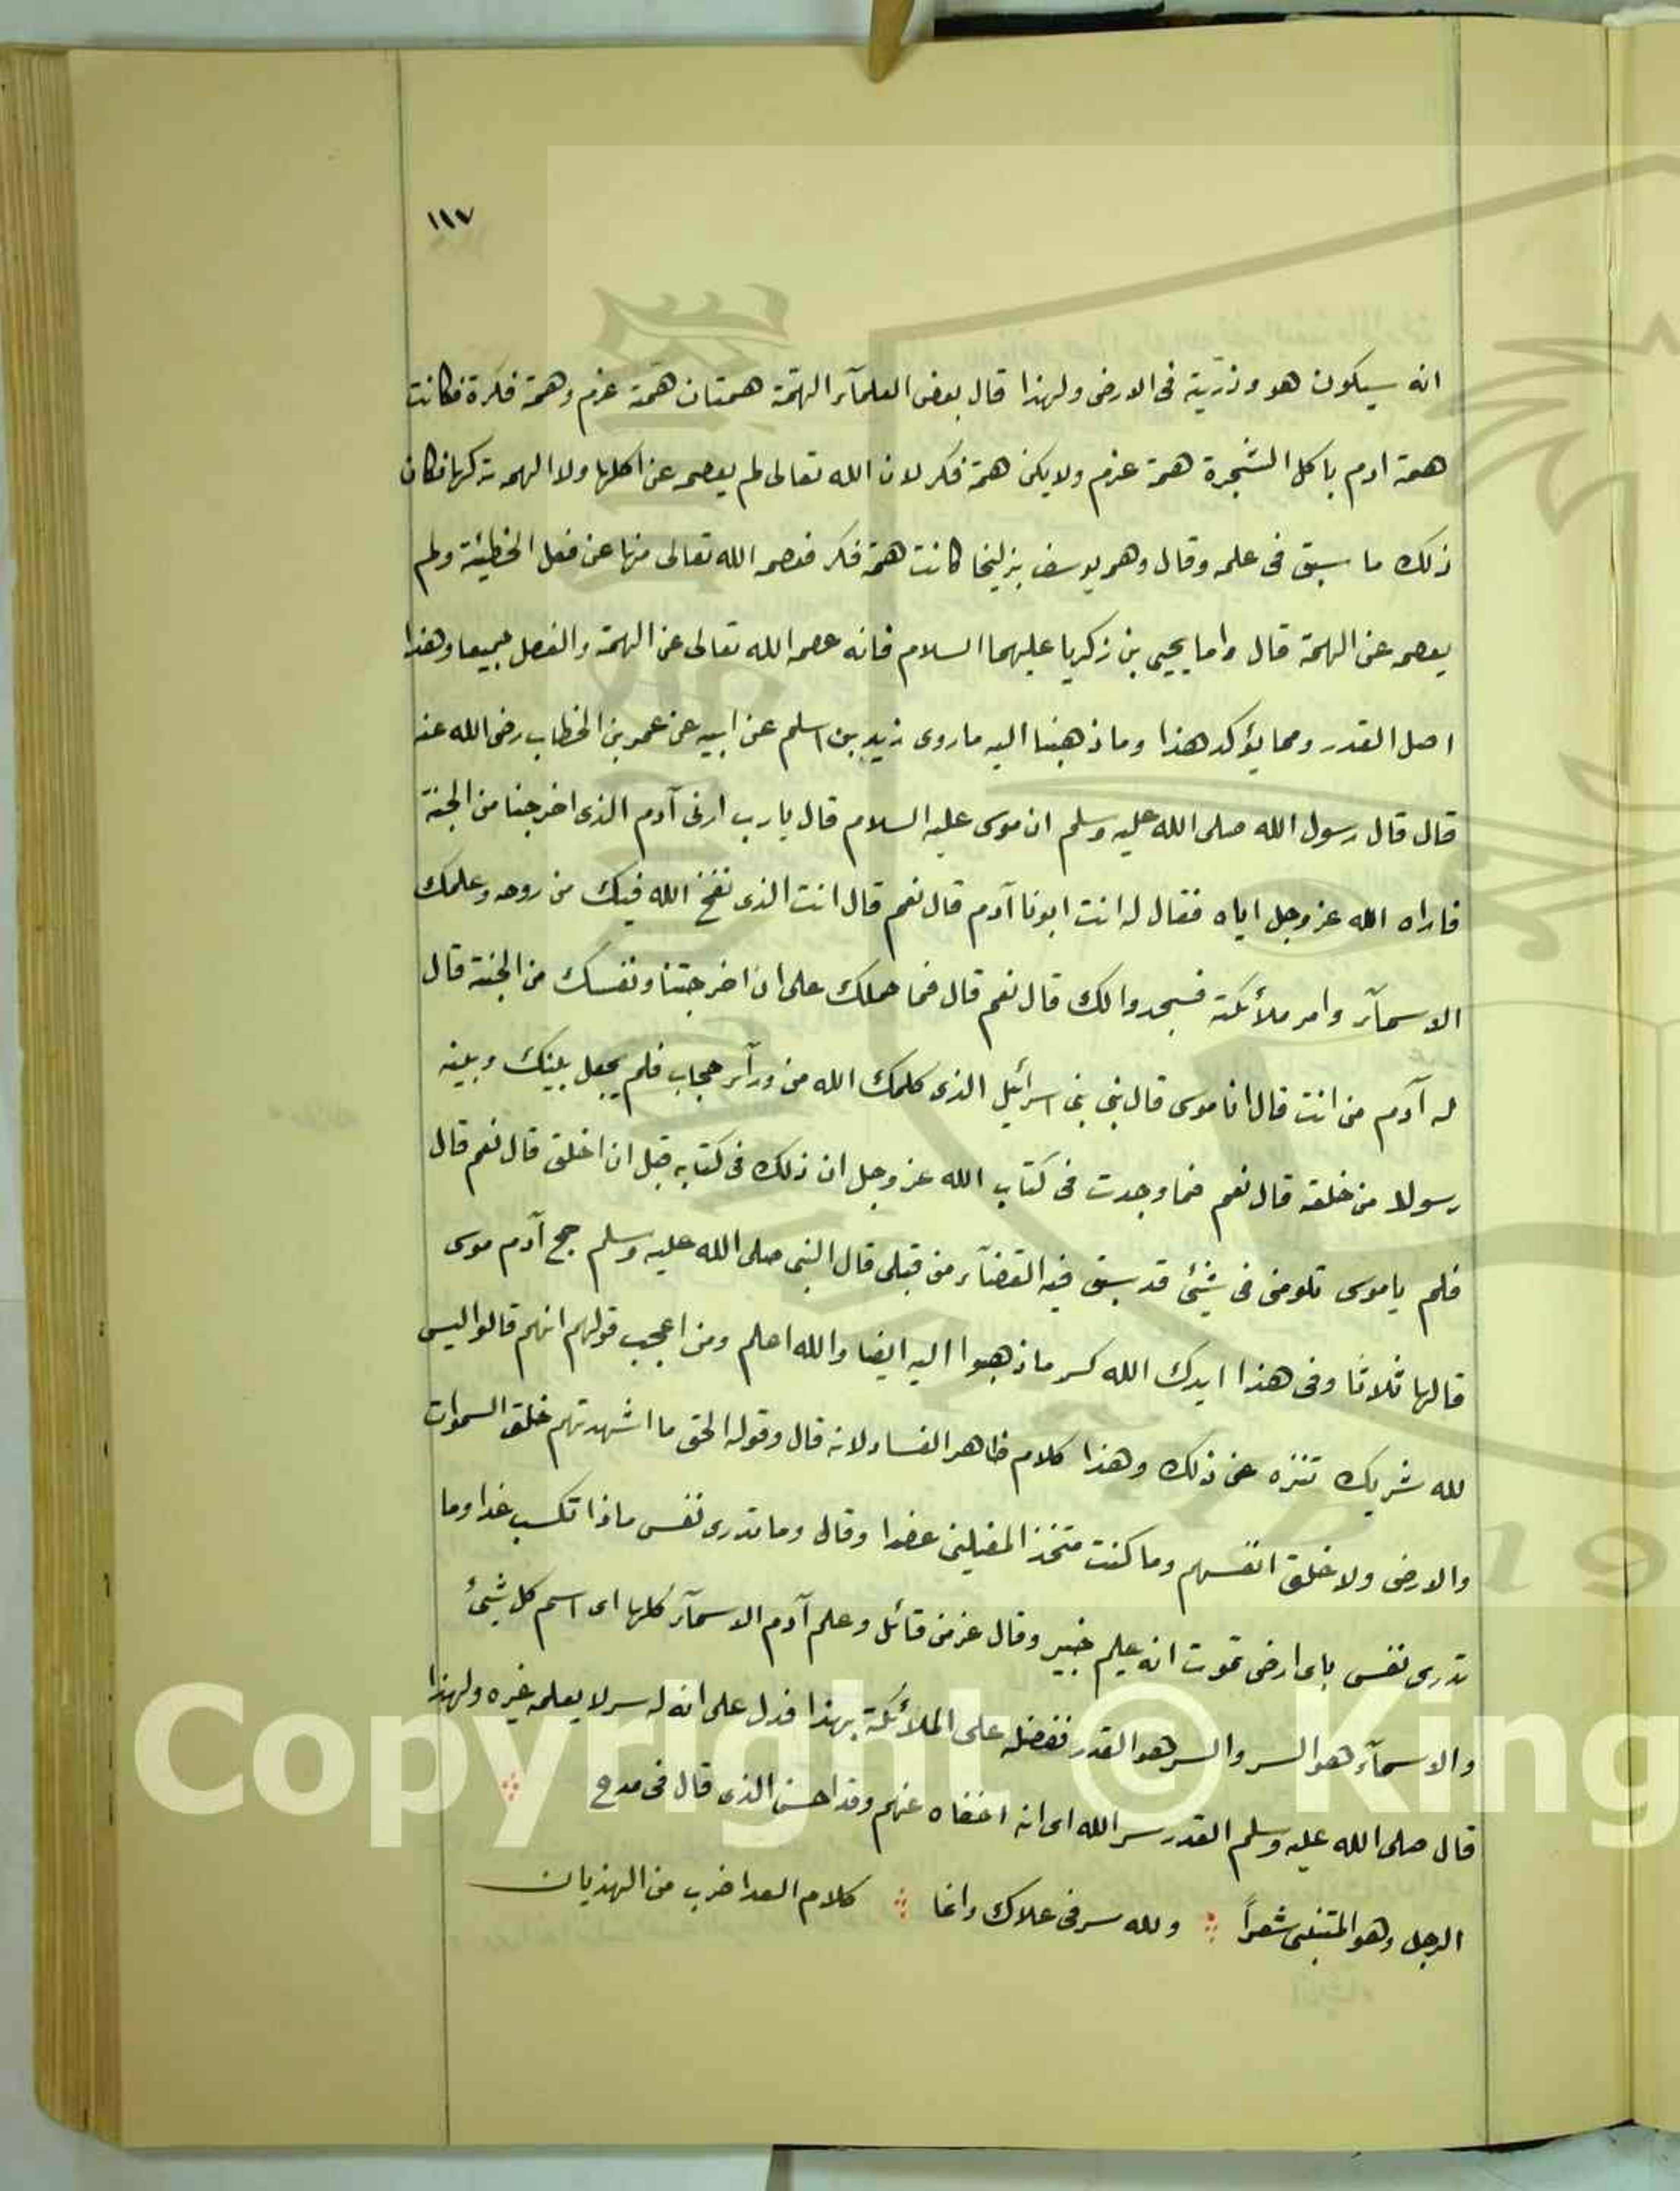 ١١٧
انه سيكون هو وذريته فى الارض ولهذا قال بعض العلمآء الهمّة همتان همّة عزم وهمة فكرة فكانت
همة ادم باكل الشجرة همة عزم ولا يكن همة فكر لان الله تعالى لم يعصمه عن اكلها ولا الهمه تركها فكان
ذلك ما سبق فى علمه وقال وهم يوسف بزليخا كانت همة فكر فعصمه الله تعالى منها عن فعل الخطيئة ولم
يعصمه عن الهمة قال واما يحيى بن زكريا عليهما السلام فانه عصمه الله تعالى عن الهمة والفعل جميعا وهذا
اصل القدر ومما يؤكد هذا وما ذهبنا اليه ما روى زيد بن اسلم عن ابيه عن عمر بن الخطاب رضى الله عنه
قال قال رسول الله صلى الله عليه وسلم ان موسى عليه السلام قال يا رب ارنى آدم الذى اخرجنا من الجنة
فاراه الله عز وجل اياه فقال له انت ابونا آدم قال نعم قال انت الذى نفخ الله فيك من روحه وعلمك
الاسمآء وامر ملأئكته فسجدوا لك قال نعم قال فما حملك على ان اخرجتنا ونفسك من الجنة قال
له آدم من انت قال انا موسى قال بنى بنى اسرائيل الذى كلمك الله من ورآء حجاب فلم يجعل بينك وبينه
رسولا من خلقه قال نعم فما وجدت فى كتاب الله عز وجل ان ذلك فى كتابه قبل ان اخلق قال نعم قال
فلم يا موسى تلومنى فى شئ قد سبق فيه القضآء من قبلى قال النبى صلى الله عليه وسلم حج آدم موسى
قالها ثلاثا وفى هذا ايدك الله كسر ما ذهبوا اليه ايضا والله اعلم ومن اعجب قولهم انهم قالوا ليس
لله شريك تنزه عن ذلك وهذا كلام ظاهر الفساد لانه قال وقوله الحق ما اشهدتهم خلق السموات
والارض ولا خلق انفسهم وما كنت متخذ المضلين عضدا وقال وما تدرى نفس ماذا تكسب غدا وما
تدرى نفس باى ارض تموت انه عليم خبير وقال عز من قائل وعلم آدم الاسمآء كلها اى اسم كل شئ
والاسمآء هو السر والسر هو القدر ففضله على الملأئكة بهذا فدل على انه له سر لا يعلمه غيره ولهذا
قال صلى الله عليه وسلم القدر سر الله اى انه اخفاه عنهم وقد احسن الذى قال فى مدح
الرجل وهو المتنبى شعراً ولله سر فى علاك وانما كلام العدا ضرب من الهذيان
Copyright © King